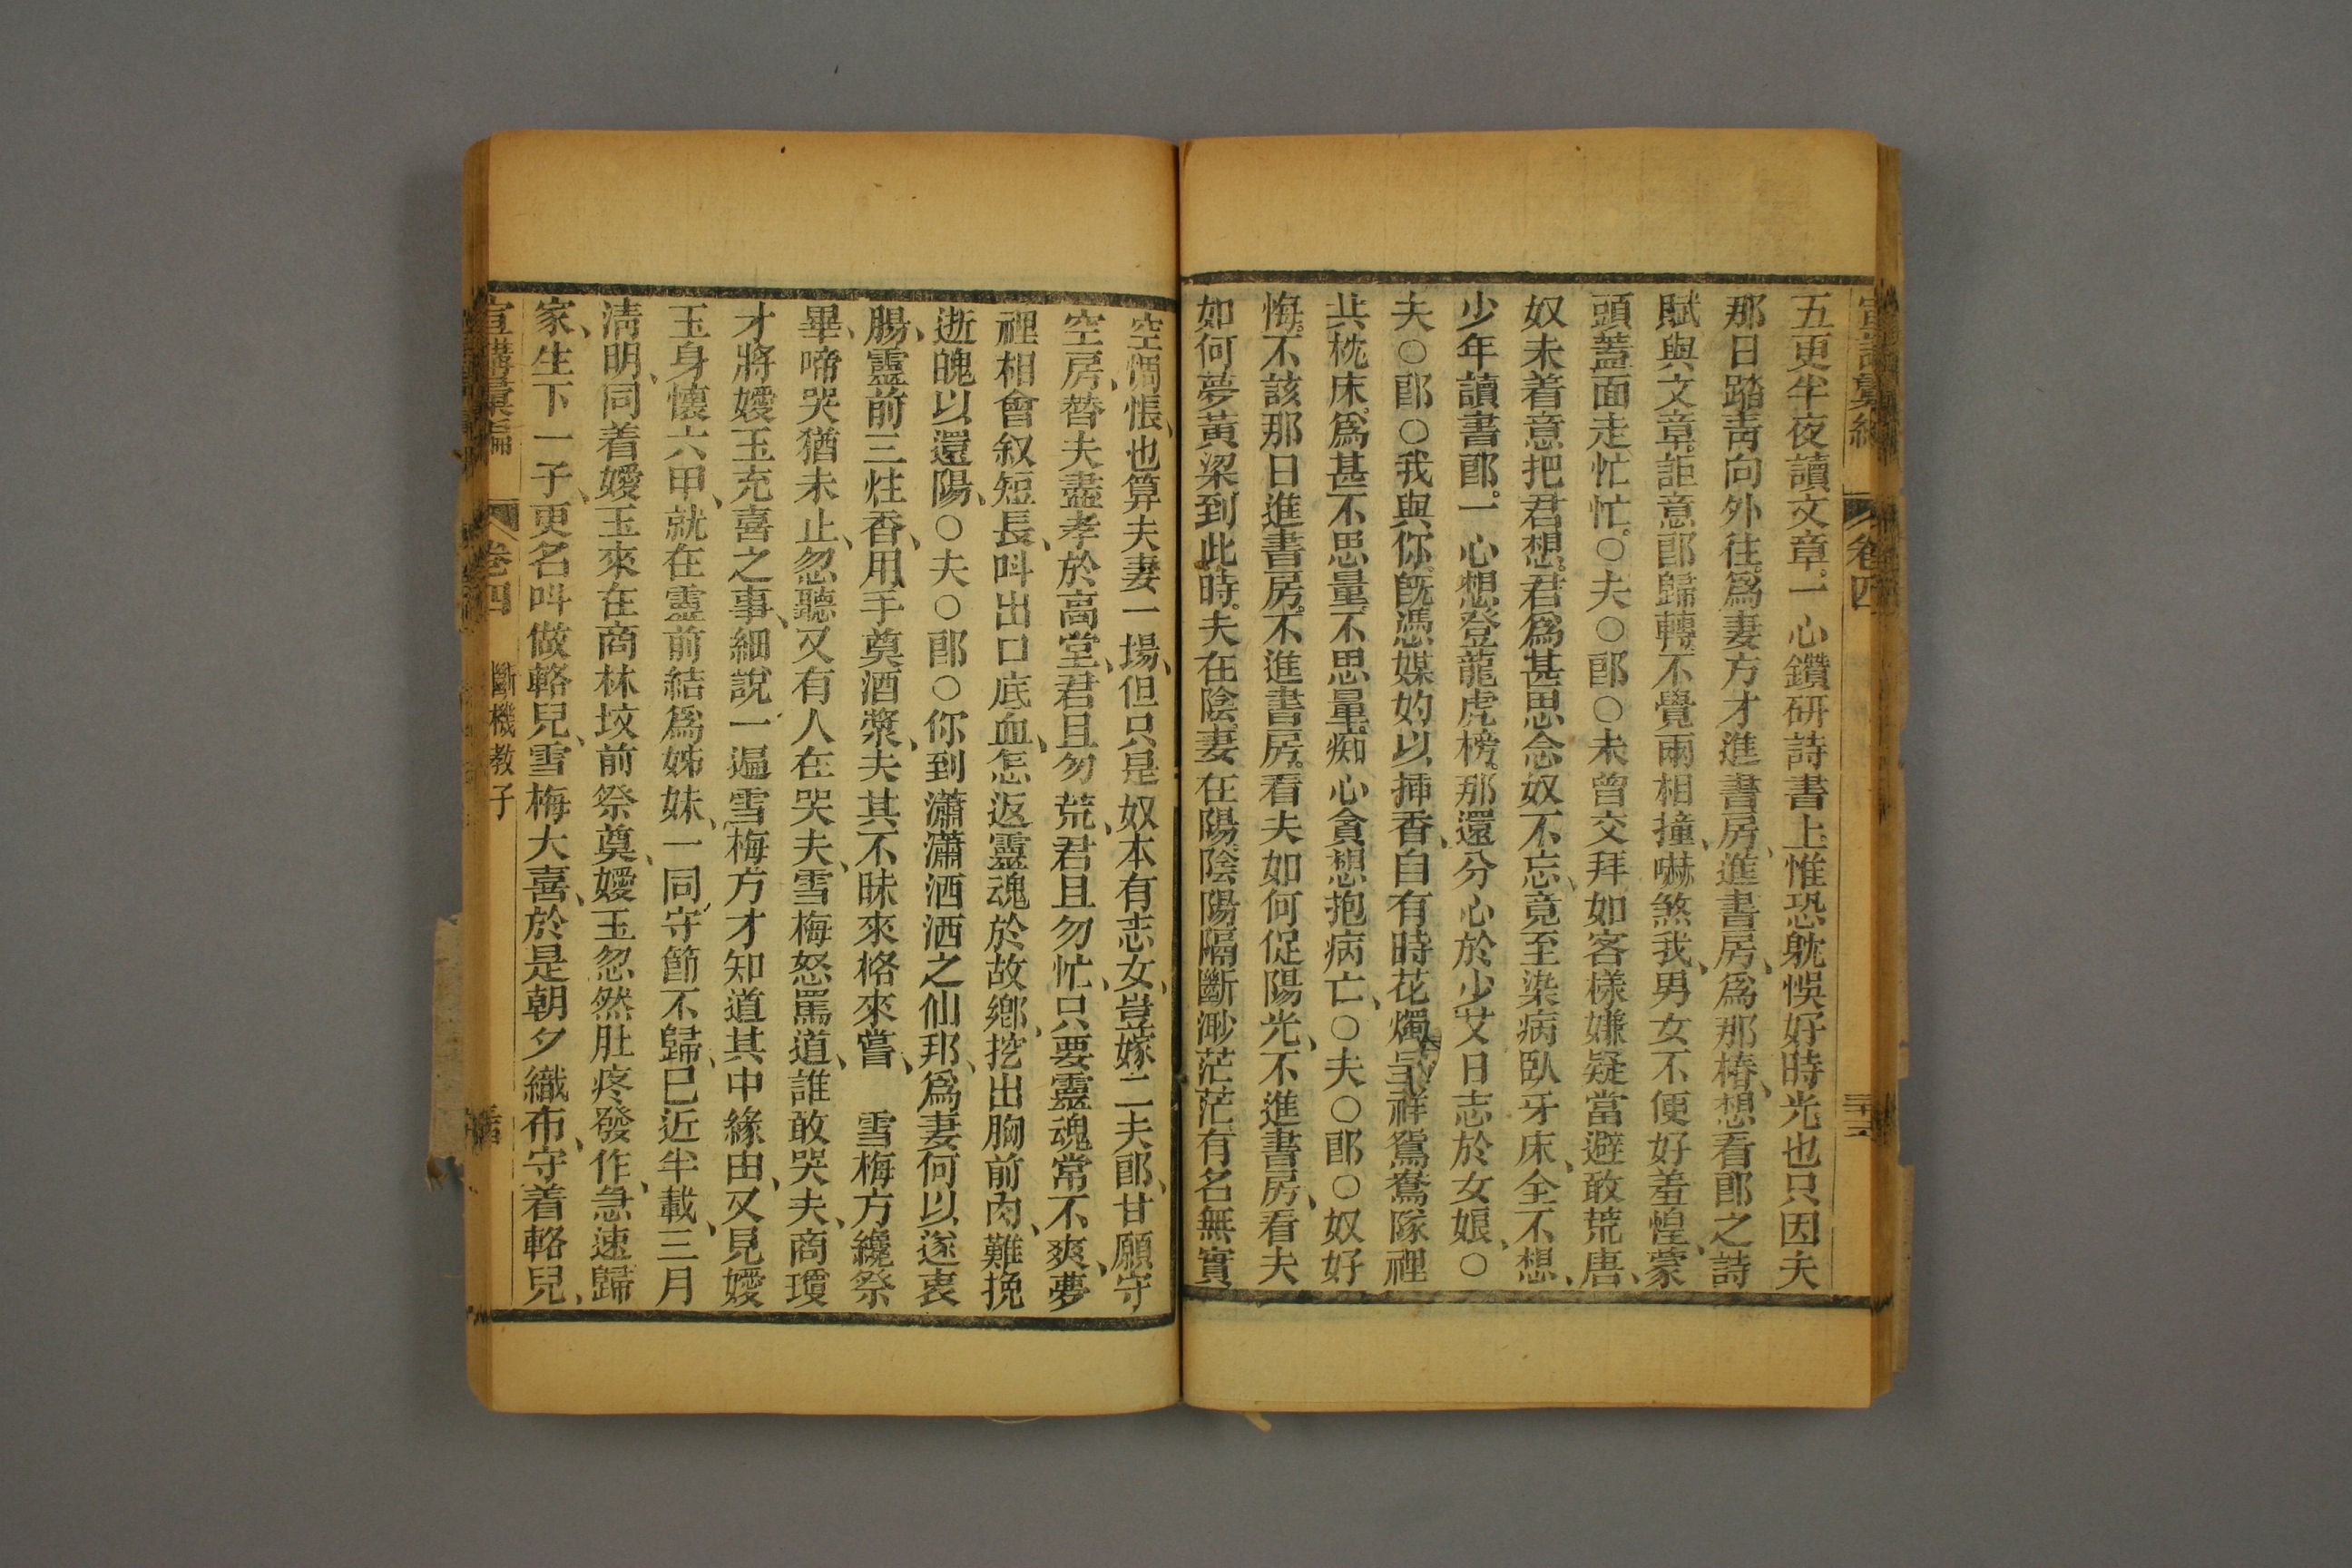 宣講彙編 卷四
五更半夜讀文章。一心鑽研詩書上、惟恐躭悞好時光、也只因夫
那日踏靑向外往。爲妻方才進書房、進書房、爲那樁、想看郎之詩
賦與文章。詎意郎歸轉、不覺兩相撞、嚇煞我、男女不便好羞惶、蒙
頭蓋面走忙忙。○夫○郎○未曾交拜如客樣、嫌疑當避敢荒唐、
奴未着意把君想。君爲甚思念奴不忘、竟至染病臥牙床、全不想、
少年讀書郎。一心想登龍虎榜。那還分心於少艾日志於女娘、○
夫○郎○我與你。旣憑媒妁以揷香、自有時花燭呈祥鴛鴦隊裡
共枕床。爲甚不思量。不思量。痴心貪想抱病亡、○夫○郎○奴好
悔。不該那日進書房。不進書房。看夫如何促陽光、不進書房、看夫
如何夢黃粱。到此時。夫在陰、妻在陽。陰陽隔斷渺茫茫、有名無實
空惆悵、也算夫妻一場、但只是奴本有志女、豈嫁二夫郎、甘願守
空房、替夫盡孝於高堂、君且勿荒、君且勿忙、只要靈魂常不爽、夢
裡相會叙短長、呌出口底血、怎返靈魂於故鄕、挖出胸前肉、難挽
逝魄以還陽、○夫○郎○你到瀟瀟洒洒之仙邦、爲妻何以遂衷
腸、靈前三炷香、用手奠酒漿、夫其不昧來格來嘗、 雪梅方纔祭
畢、啼哭猶未止、忽聽又有人在哭夫、雪梅怒罵道、誰敢哭夫、商瓊
才將嬡玉充喜之事、細說一遍、雪梅方才知道其中緣由、又見嬡
玉身懷六甲、就在靈前結爲姊妹、一同守節不歸、已近半載、三月
淸明、同着嬡玉來在商林坟前祭奠、嬡玉忽然肚疼發作、急速歸
家、生下一子、更名呌做輅兒、雪梅大喜、於是朝夕織布、守着輅兒、
宣講彙編 卷四 斷機教子